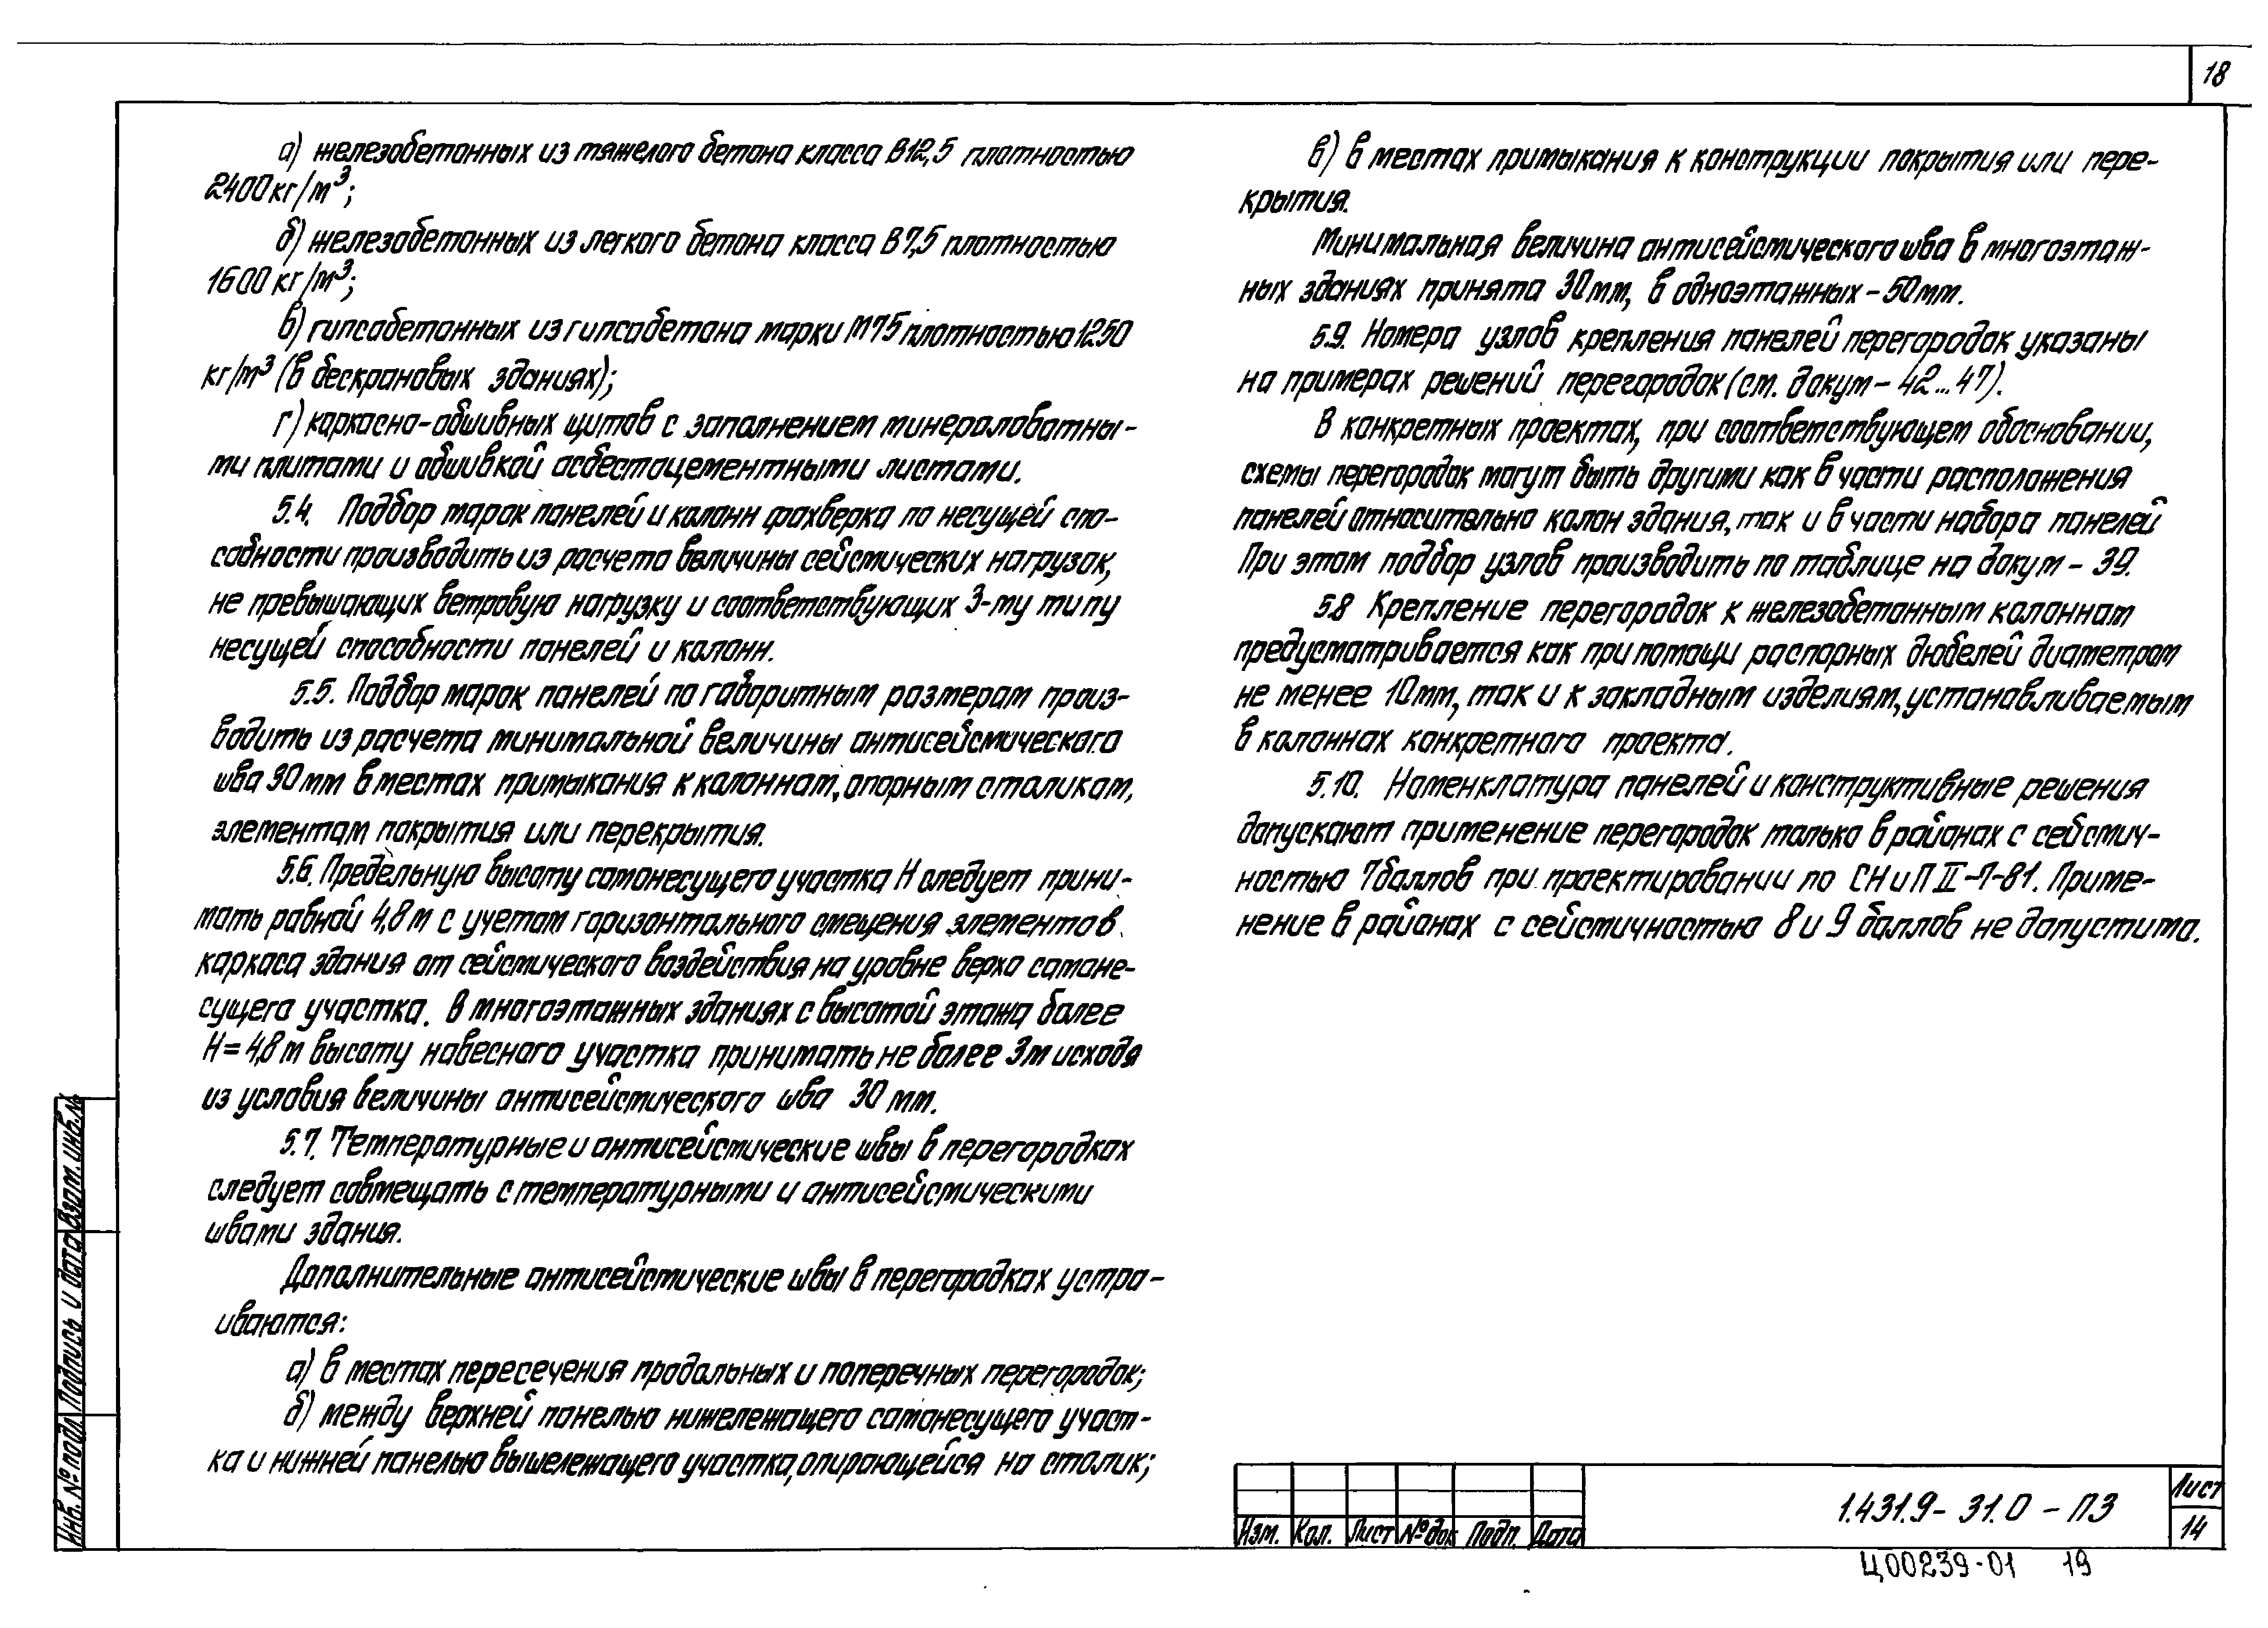 18
а) железобетонных из тяжелого бетона класса В12,5 плотностью
2400 кг/м³;
б) железобетонных из легкого бетона класса В7,5 плотностью
1600 кг/м³;
в) гипсобетонных из гипсобетона марки М75 плотностью 1250
кг/м³ (в бескрановых зданиях);
г) каркасно-обшивных щитов с заполнением минераловатны-
ми плитами и обшивкой асбестоцементными листами.
5.4. Подбор марок панелей и колонн фахверка по несущей спо-
собности производить из расчета величины сейсмических нагрузок,
не превышающих ветровую нагрузку и соответствующих 3-му типу
несущей способности панелей и колонн.
5.5. Подбор марок панелей по габоритным размерам произ-
водить из расчета минимальной величины антисейсмического
шва 30 мм в местах примыкания к колоннам, опорным столикам,
элементам покрытия или перекрытия.
5.6. Предельную высоту самонесущего участка Н следует прини-
мать равной 4,8 м с учетом горизонтального смещения элементов
каркаса здания от сейсмического воздействия на уровне верха самоне-
сущего участка. В многоэтажных зданиях с высотой этажа более
Н = 4,8 м высоту навесного участка принимать не более 3м исходя
из условия величины антисейсмического шва 30 мм.
5.7. Температурные и антисейсмические швы в перегородках
следует совмещать с температурными и антисейсмическими
швами здания.
Дополнительные антисейсмические швы в перегородках устра-
иваются:
а) в местах пересечения продольных и поперечных перегородок;
б) между верхней панелью нижележащего самонесущего участ-
ка и нижней панелью вышележащего участка, опирающейся на столик;
в) в местах примыкания к конструкции покрытия или пере-
крытия.
Минимальная величина антисейсмического шва в многоэтаж-
ных зданиях принята 30мм, в одноэтажных – 50мм.
5.9. Номера узлов крепления панелей перегородок указаны
на примерах решений перегородок (см. докум – 42...47).
В конкретных проектах, при соответствующем обосновании,
схемы перегородок могут быть другими как в части расположения
панелей относительно колон здания, так и в части набора панелей
При этом подбор узлов производить по таблице на докум – 39.
5.8 Крепление перегородок к железобетонным колоннам
предусматривается как при помощи распорных дюбелей диаметром
не менее 10мм, так и к закладным изделиям, устанавливаемым
в колоннах конкретного проекта.
5.10. Номенклатура панелей и конструктивные решения
допускают применение перегородок только в районах с сейсмич-
ностью 7 баллов при проектировании по СНиП II-7-81. Приме-
нение в районах с сейсмичностью 8 и 9 баллов не допустимо.
Инв. № подл. Подпись и дата Взам. инв. №
Изм. Кол. Лист № док Подп. Дата
1.431.9 - 31.0 - ПЗ
Лист
14
Ц00239-01 19